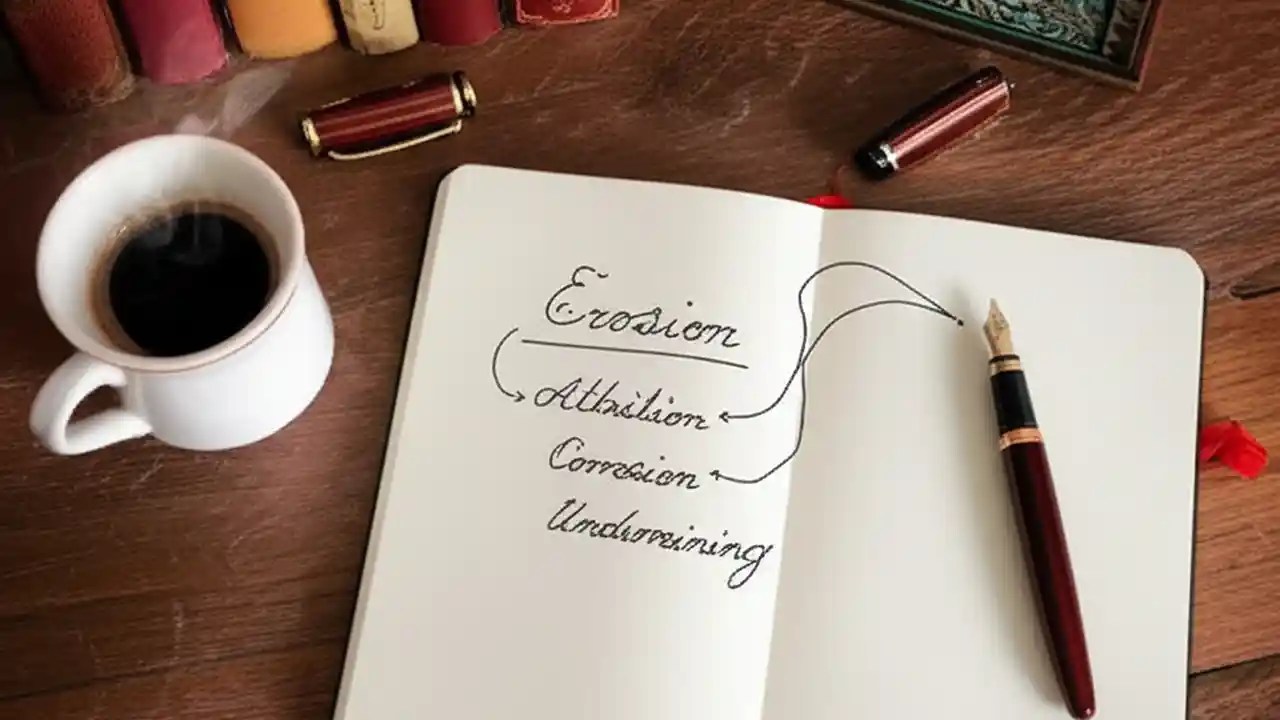 Erosion
Attrition
Corrosion
Undermining